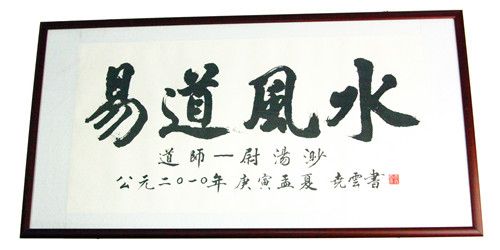 易道風水
道師一尉湯渺
公元二〇一〇年庚寅孟夏 堯雲書